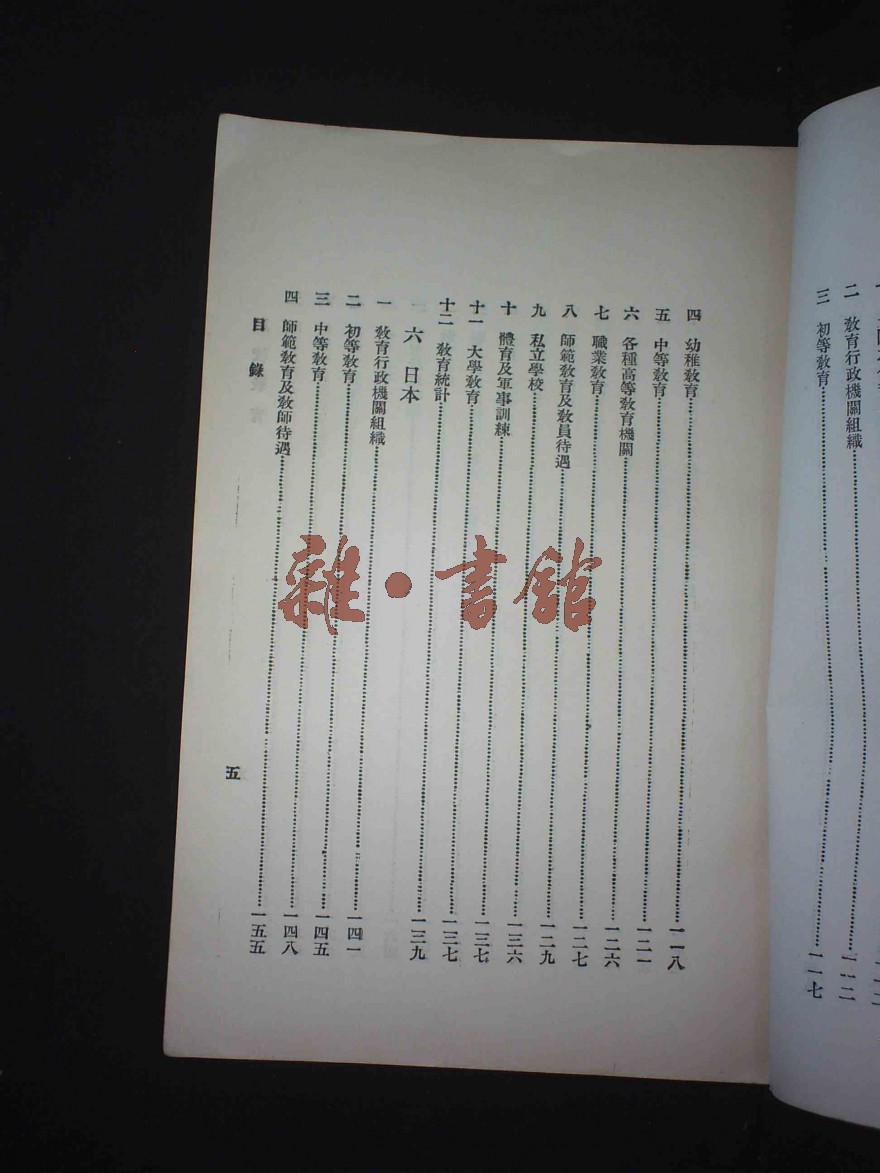 二 教育行政機關組織……一一二
三 初等教育……一一七
四 幼稚教育……一一八
五 中等教育……一二一
六 各種高等教育機關……一二六
七 職業教育……一二七
八 師範教育及教員待遇……一二九
九 私立學校……一三六
十 體育及軍事訓練……一三七
十一 大學教育……一三七
十二 教育統計……一三九
六 日本
一 教育行政機關組織……一四一
二 初等教育……一四五
三 中等教育……一四八
四 師範教育及教師待遇……一五五
目錄
五
雜·書館